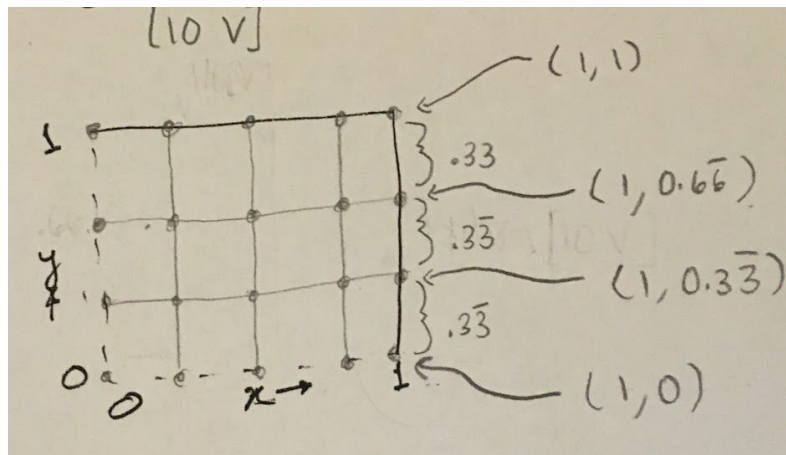 [10 V]
(1,1)
1
.33
(1, 0.66̅)
.33̅
y
(1, 0.33̅)
.33̅
0
0
x →
1
(1,0)